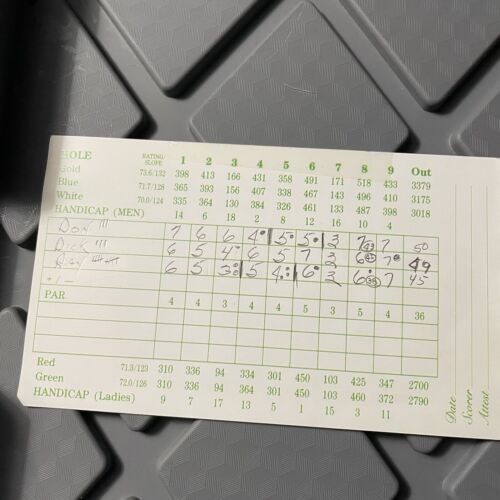 HOLE RATING/SLOPE 1 2 3 4 5 6 7 8 9 Out
Gold 73.6/132 398 413 166 431 358 491 171 518 433 3379
Blue 71.7/128 365 393 156 407 338 467 143 496 410 3175
White 70.0/124 335 364 130 384 326 461 133 487 398 3018
HANDICAP (MEN) 14 6 18 2 8 12 16 10 4
Don 7 6 6 4 5 5 3 7 7 50
Dick 6 5 4 6 5 7 3 6 7 49
6 5 3 5 4 6 3 6 7 45
+/−
PAR 4 4 3 4 4 5 3 5 4 36
Red 71.3/123 310 336 94 334 301 450 103 425 347 2700
Green 72.0/126 310 336 94 364 301 450 103 460 372 2790
HANDICAP (Ladies) 9 7 17 13 5 1 15 3 11
Date
Scorer
Attest